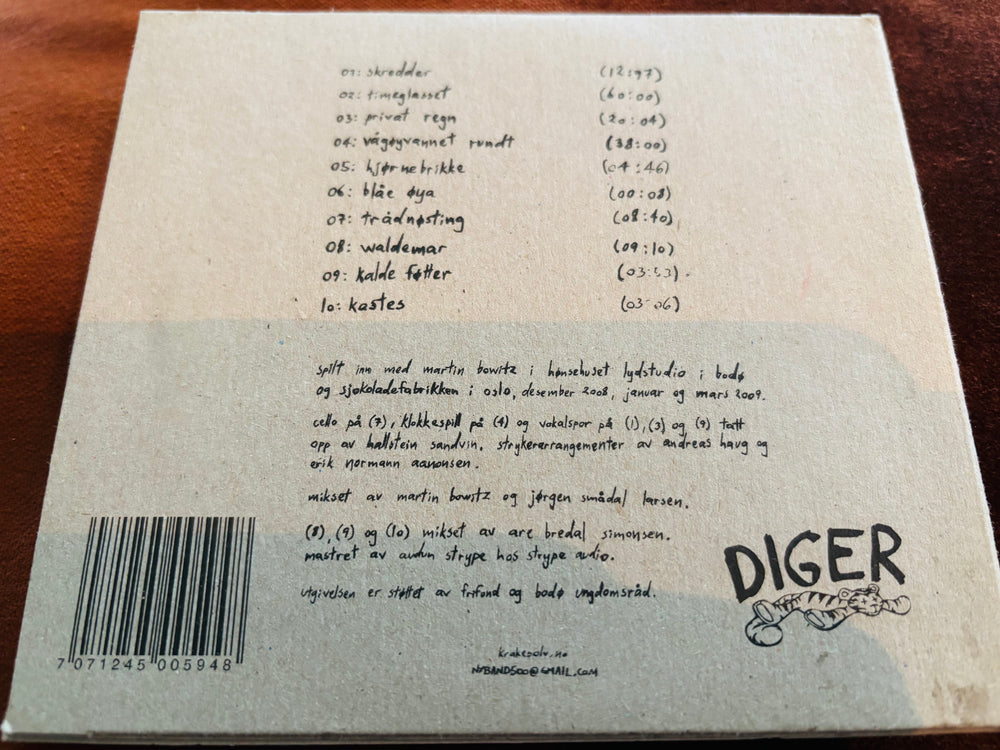 01: skredder (12:97)
02: timeglasset (60:00)
03: privat regn (20:04)
04: vågøyvannet rundt (38:00)
05: hjørnebrikke (04:46)
06: blåe øya (00:08)
07: trådnøsting (08:40)
08: waldemar (09:10)
09: kalde føtter (03:53)
10: kastes (03:06)
spilt inn med martin bowitz i hønsehuset lydstudio i bodø
og sjokoladefabrikken i oslo, desember 2008, januar og mars 2009.
cello på (7), klokkespill på (4) og vokalspor på (1), (3) og (9) tatt
opp av hallstein sandvin. strykerarrangementer av andreas haug og
erik normann aanonsen.
mikset av martin bowitz og jørgen smådal larsen.
(8), (9) og (10) mikset av are bredal simonsen.
mastret av audun strype hos strype audio.
utgivelsen er støttet av frifond og bodø ungdomsråd.
DIGER
7 071245 005948
krakesolv.no